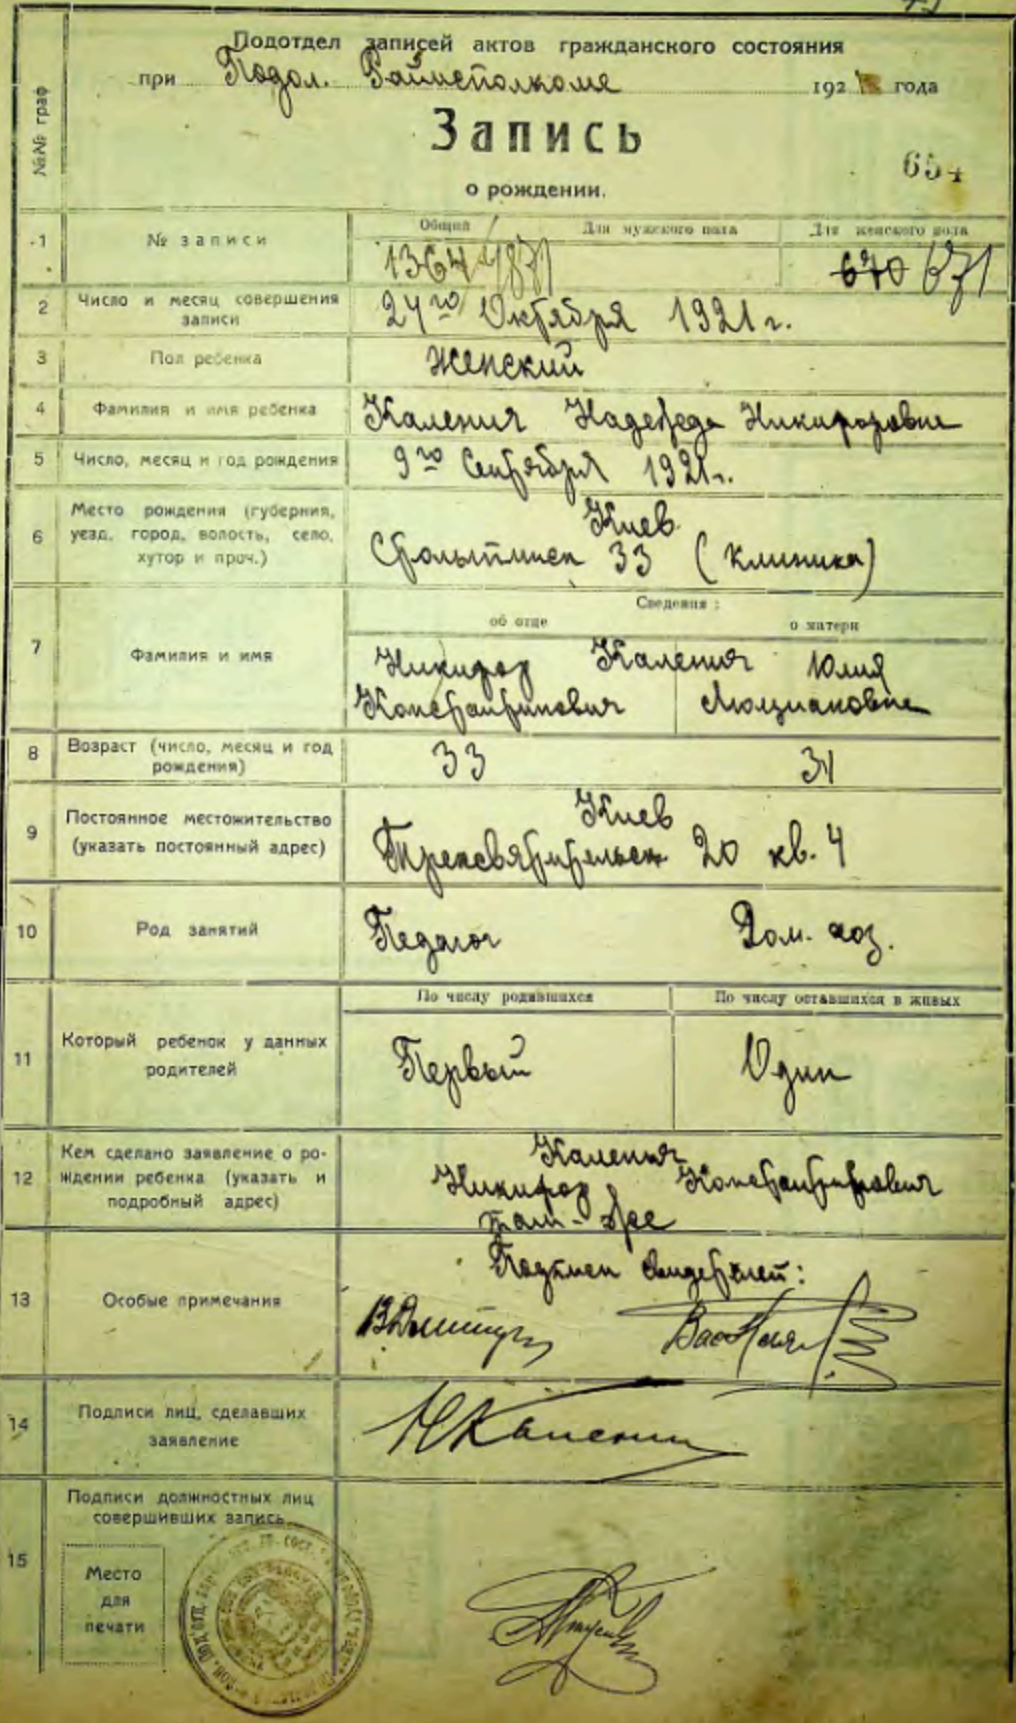 Подотдел записей актов гражданского состояния
при Подол. Райисполкоме 192 года
№№ граф
Запись
о рождении.
654
1 № записи Общий Для мужского пола Для женского пола
1364 670 671
2 Число и месяц совершения записи
24го Октября 1921 г.
3 Пол ребенка Женский
4 Фамилия и имя ребенка Каленич Надежда Никифоровна
5 Число, месяц и год рождения 9го Сентября 1921 г.
6 Место рождения (губерния,
уезд, город, волость, село,
хутор и проч.)
Киев
33 (клиника)
Сведения:
об отце о матери
7 Фамилия и имя
Никифор Каленич Юлия
Константинович Люциановна
8 Возраст (число, месяц и год
рождения)
33 31
9 Постоянное местожительство
(указать постоянный адрес)
Киев
Трехсвятительск 20 кв. 4
10 Род занятий Педагог Дом. хоз.
По числу родившихся По числу оставшихся в живых
11 Который ребенок у данных
родителей
Первый Один
12 Кем сделано заявление о ро-
ждении ребенка (указать и
подробный адрес)
Каленич
Никифор Константинович
там-же
13 Особые примечания
Подписи свидетелей:
14 Подписи лиц, сделавших
заявление
НКаленич
15 Подписи должностных лиц
совершивших запись
Место
для
печати